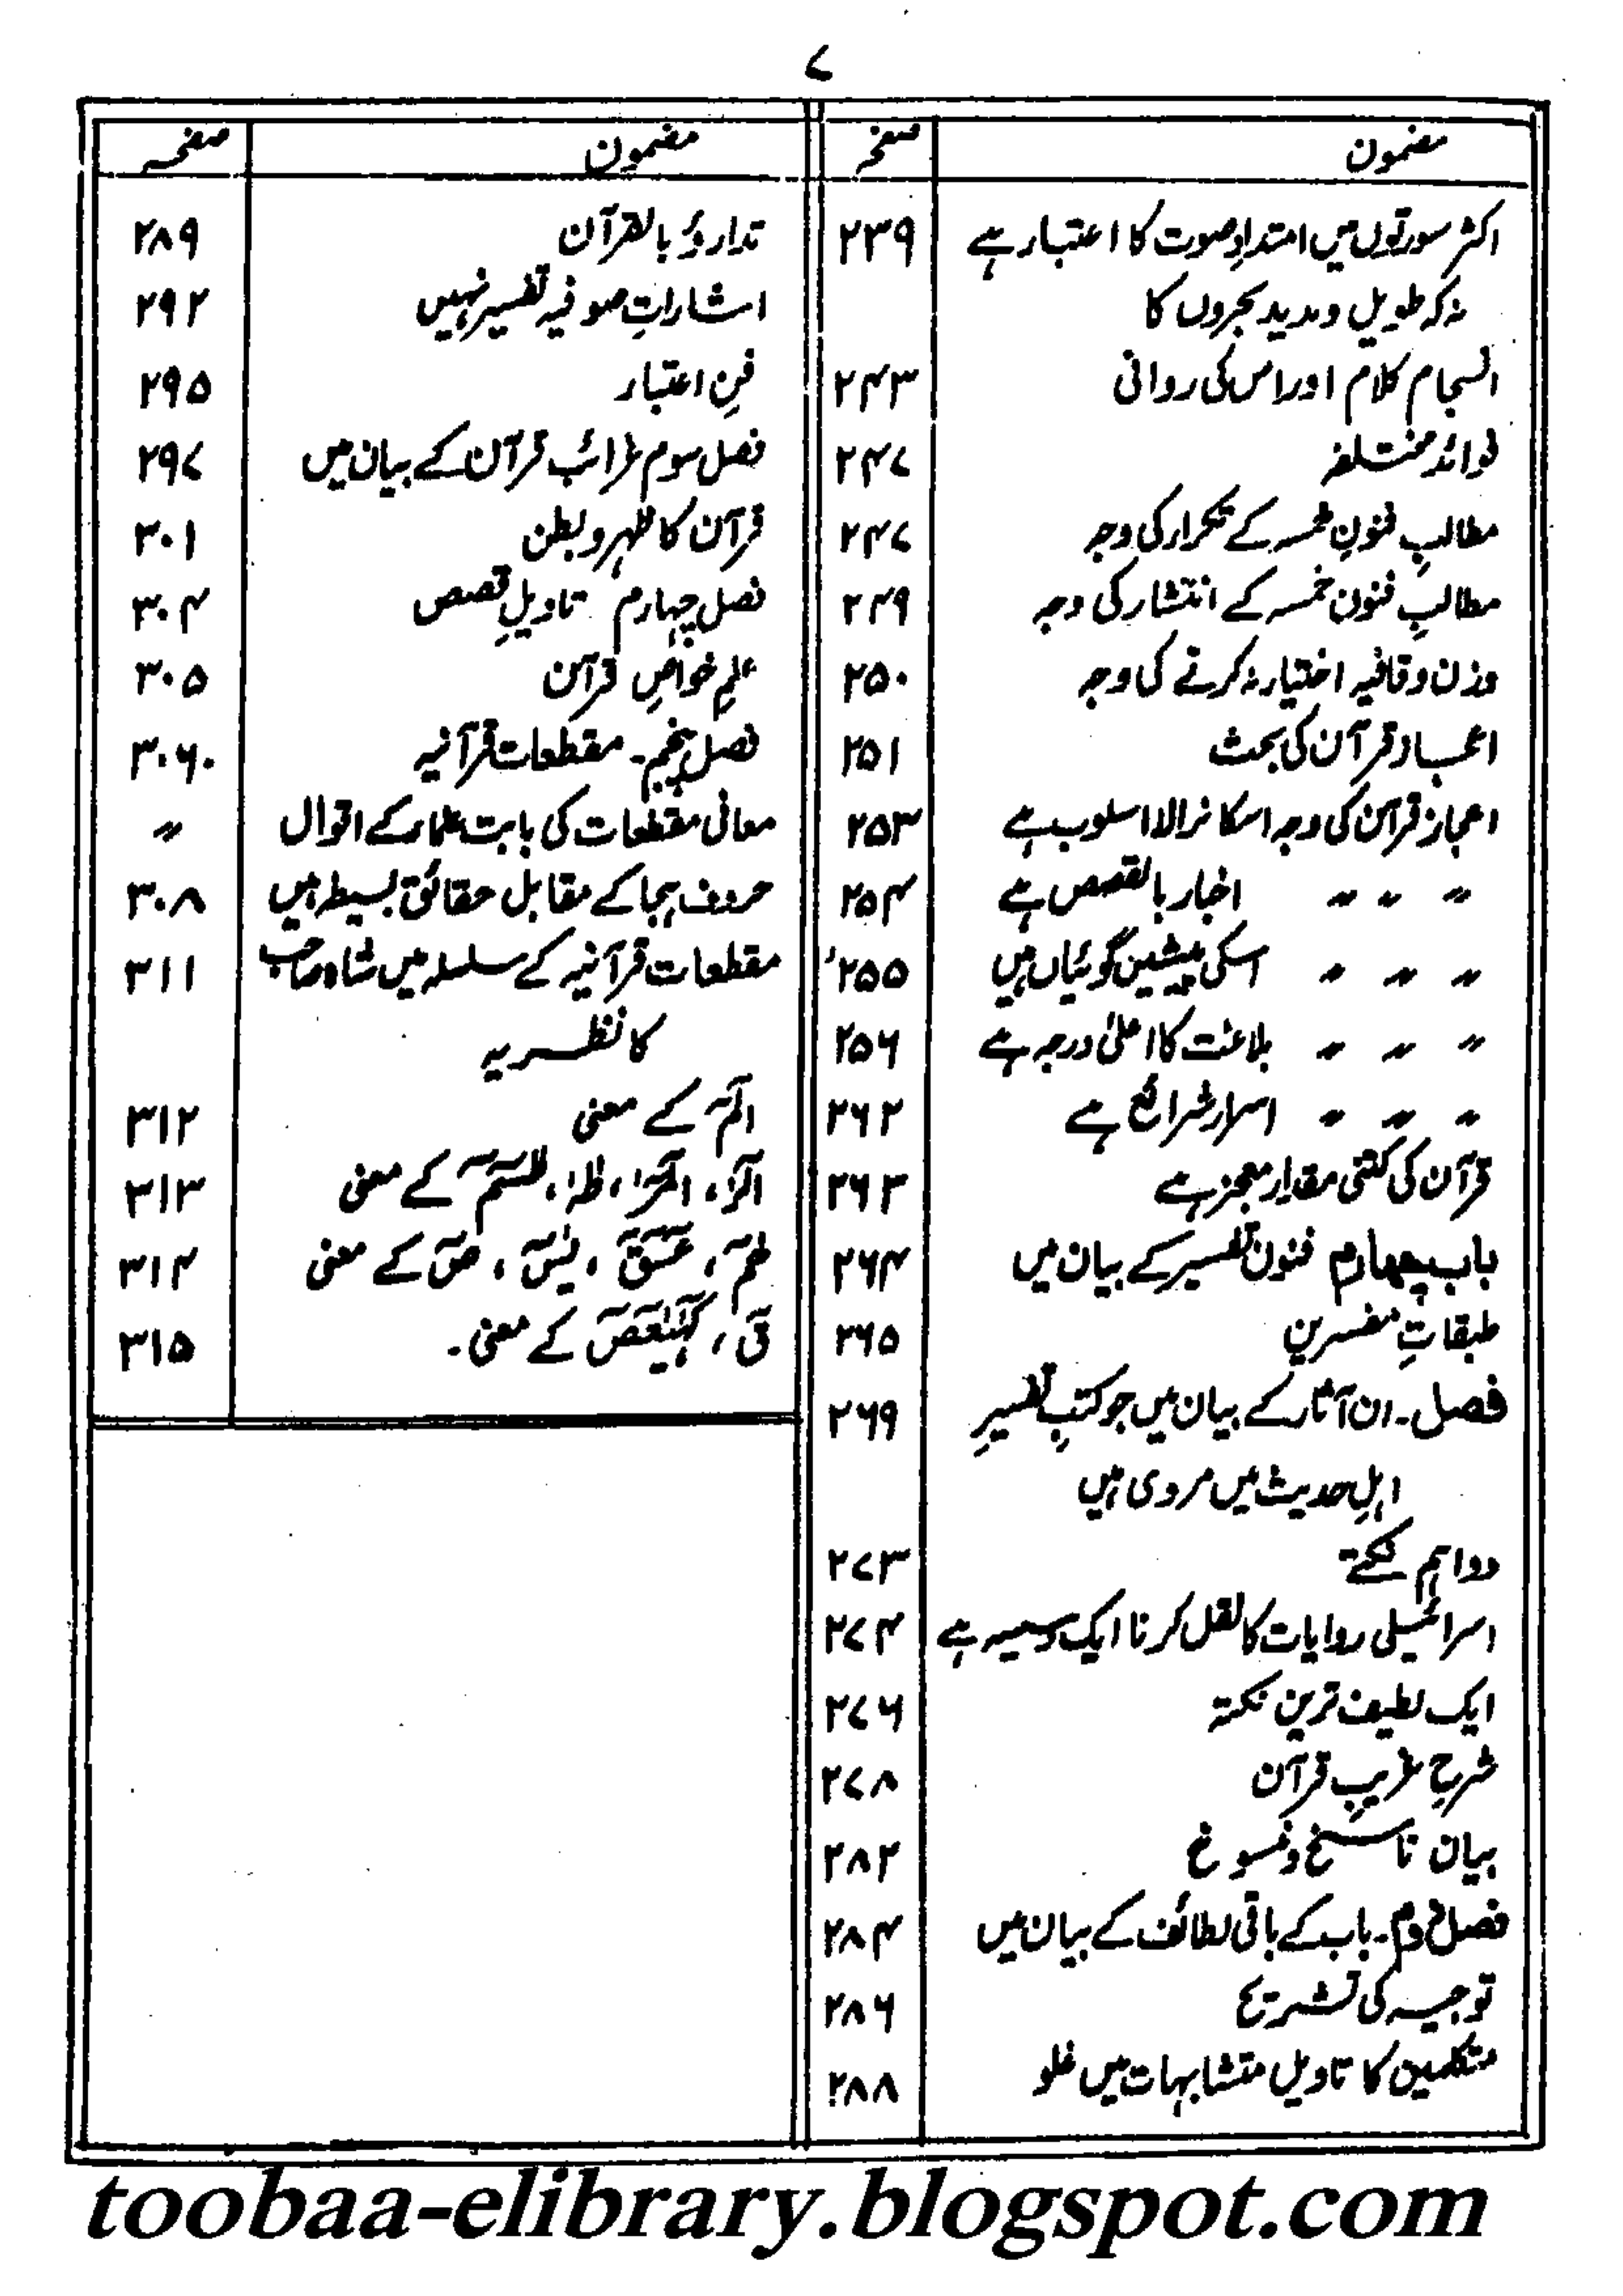 ۷
مضمون صفحہ
اکثر سورتوں میں امتدادِ صوت کا اعتبار ہے ۲۳۹
نہ کہ طویل و مدید بحروں کا
انسجام کلام اور اس کی روانی ۲۴۳
فوائد مختلفہ ۲۴۷
مطالبِ فنونِ خمسہ کے تکرار کی وجہ ۲۴۷
مطالبِ فنون خمسہ کے انتشار کی وجہ ۲۴۹
وزن و قافیہ اختیار نہ کرنے کی وجہ ۲۵۰
اعجاز قرآن کی بحث ۲۵۱
اعجاز قرآن کی وجہ اسکا نرالا اسلوب ہے ۲۵۳
〃 〃 〃 اخبار بالقصص ہے ۲۵۴
〃 〃 〃 اسکی پیشین گوئیاں ہیں ۲۵۵
〃 〃 〃 بلاغت کا اعلیٰ درجہ ہے ۲۵۶
〃 〃 〃 اسرار شرائع ہے ۲۶۲
قرآن کی کتنی مقدار معجز ہے ۲۶۳
باب چهارم فنون تفسیر کے بیان میں ۲۶۴
طبقاتِ مفسرین ۲۶۵
فصل۔ ان آثار کے بیان میں جو کتبِ تفسیرِ ۲۶۹
اہلِ حدیث میں مروی ہیں
دو اہم نکتے ۲۷۳
اسرائیلی روایات کا نقل کرنا ایک دسیسہ ہے ۲۷۴
ایک لطیف ترین نکتہ ۲۷۶
شرحِ غریبِ قرآن ۲۷۸
بیان ناسخ و منسوخ ۲۸۲
فصل دوم۔ باب کے باقی لطائف کے بیان میں ۲۸۴
توجیہ کی تشریح ۲۸۶
متکلمین کا تاویل متشابہات میں غلو ۲۸۸
مضمون صفحہ
تدارؤ بالقرآن ۲۸۹
اشاراتِ صوفیہ تفسیر نہیں ۲۹۲
فنِ اعتبار ۲۹۵
فصل سوم غرائب قرآن کے بیان میں ۲۹۷
قرآن کا ظہر و بطن ۳۰۱
فصل چہارم تاویلِ قصص ۳۰۴
علمِ خواصِ قرآن ۳۰۵
فصل پنجم۔ مقطعات قرآنیہ ۳۰۶۰
معانی مقطعات کی بابت علماء کے اقوال 〃
حروف ہجا کے مقابل حقائق بسیطہ ہیں ۳۰۸
مقطعات قرآنیہ کے سلسلہ میں شاہ صاحب ۳۱۱
کا نظریہ
الٓمٓ کے معنی ۳۱۲
الٓرٰ، الٓمٓرٰ، طٰہٰ، طٰسٓمٓ کے معنی ۳۱۳
حٰمٓ، عٓسٓقٓ، یٰسٓ، صٓ کے معنی ۳۱۴
قٓ، کٓہٰیٰعٓصٓ کے معنی۔ ۳۱۵
toobaa-elibrary.blogspot.com